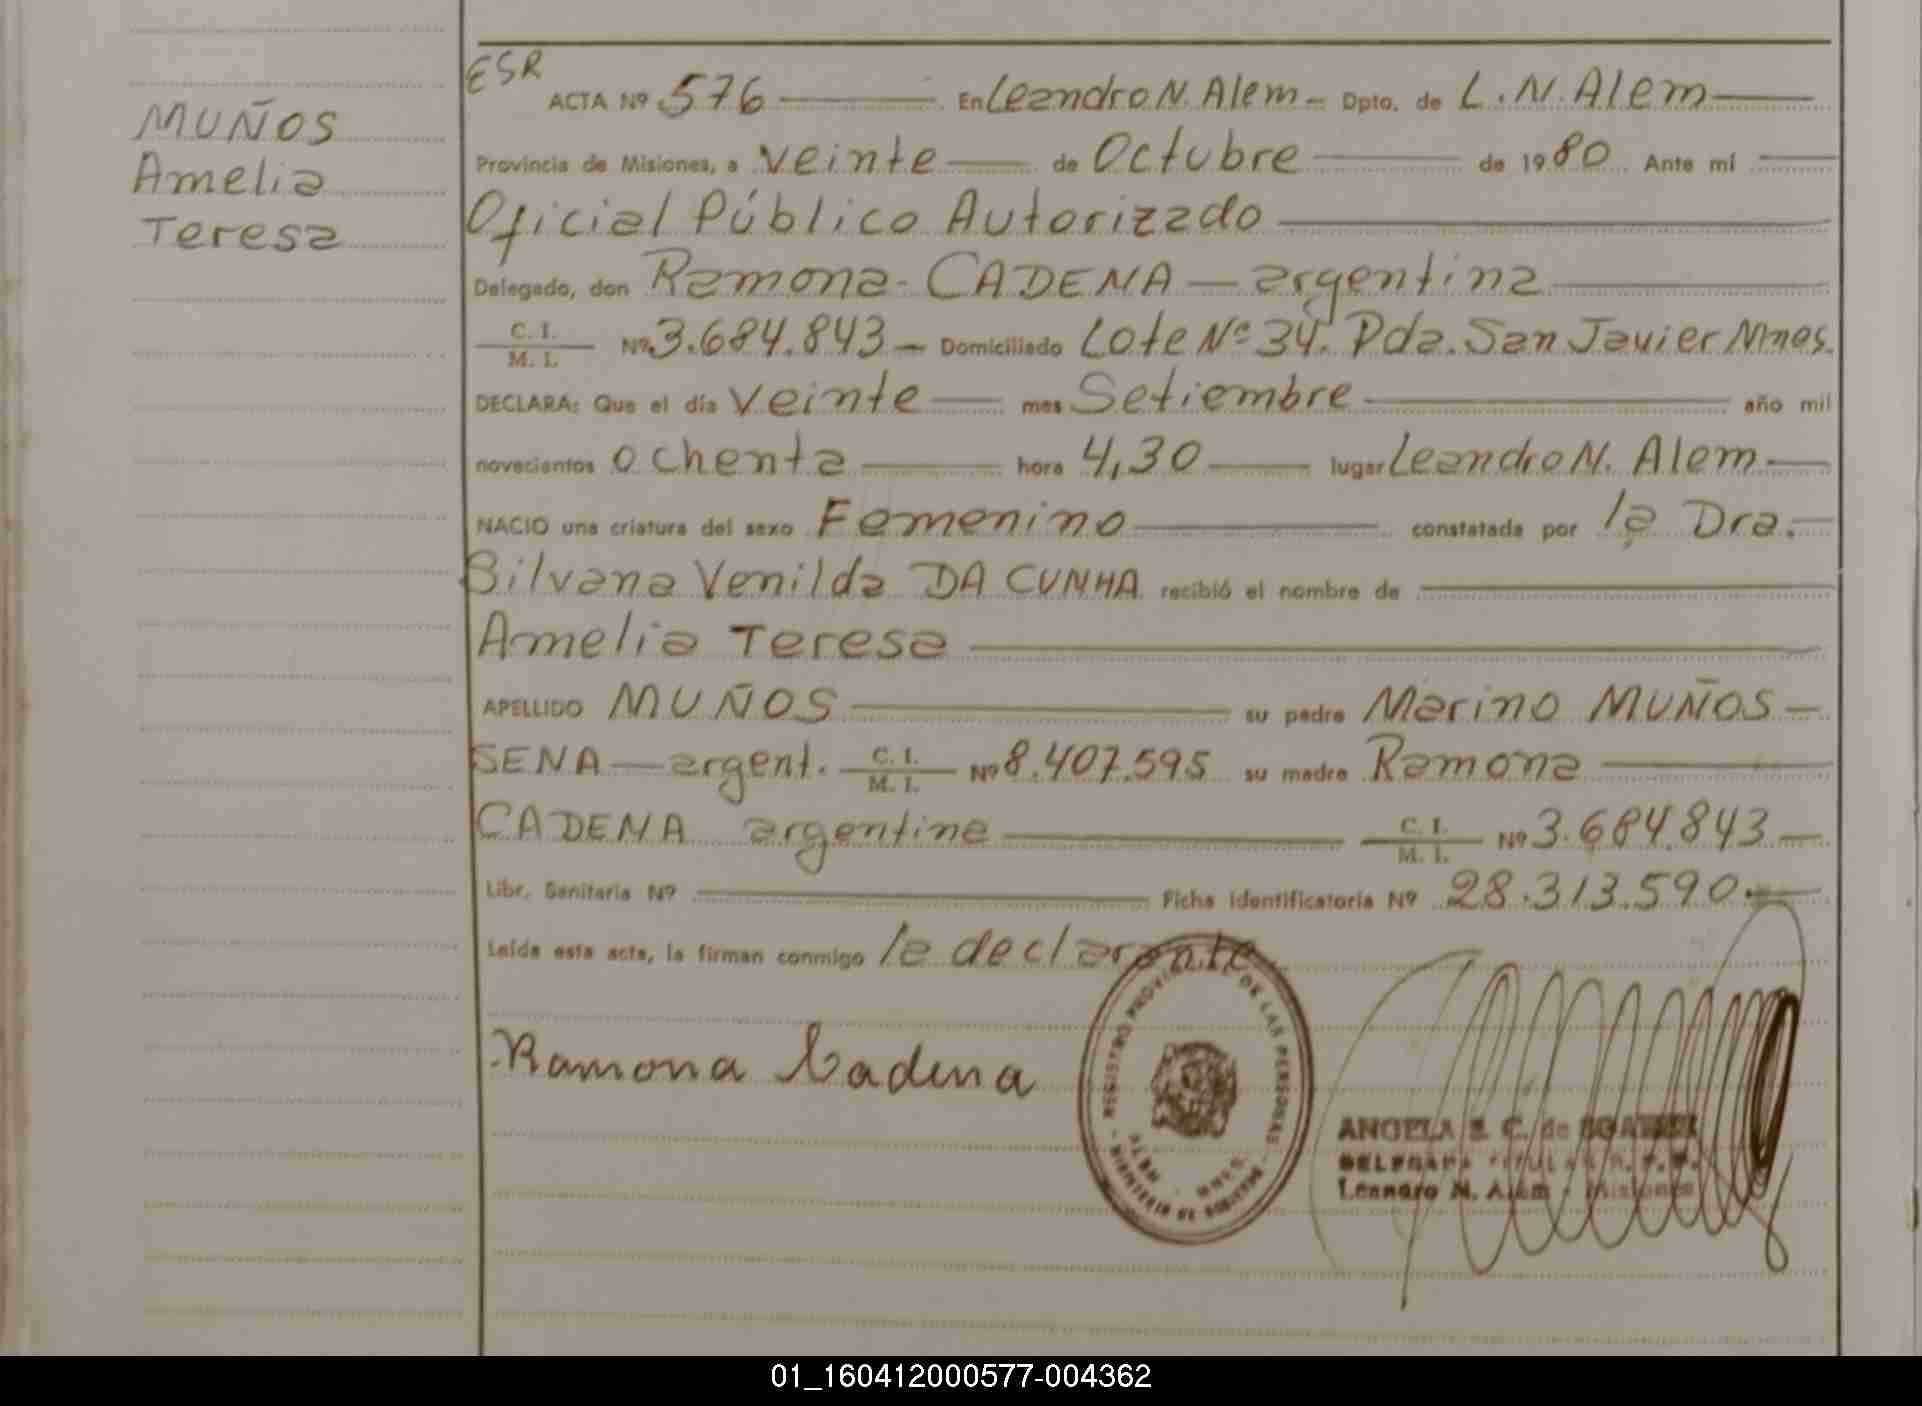 MUÑOS
Amelia
Teresa
ESR
ACTA Nº 576 En Leandro N. Alem - Dpto. de L. N. Alem
Provincia de Misiones, a veinte de Octubre de 1980 Ante mí
Oficial Público Autorizado
Delegado, don Ramona - CADENA - argentina
C. I.
M. I. Nº 3.684.843 - Domiciliado Lote Nº 34. Pda. San Javier Mnes.
DECLARA: Que el día veinte mes Setiembre año mil
novecientos ochenta hora 4,30 lugar Leandro N. Alem
NACIO una criatura del sexo Femenino constatada por la Dra.
Silvana Venilda DA CUNHA recibió el nombre de
Amelia Teresa
APELLIDO MUÑOS su padre Marino MUÑOS -
SENA - argent. C. I. M. I. Nº 8.407.595 su madre Ramona
CADENA argentina C. I. M. I. Nº 3.684.843
Libr. Sanitaria Nº Ficha Identificatoria Nº 28.313.590.
Leída esta acta, la firman conmigo la declarante
Ramona Cadena
REGISTRO PROVINCIAL DE LAS PERSONAS
MINISTERIO DE GOBIERNO
ALEM
ANGELA E. C. de
DELEGADA TITULAR R. P. P.
Leandro N. Alem - Misiones
01_160412000577-004362